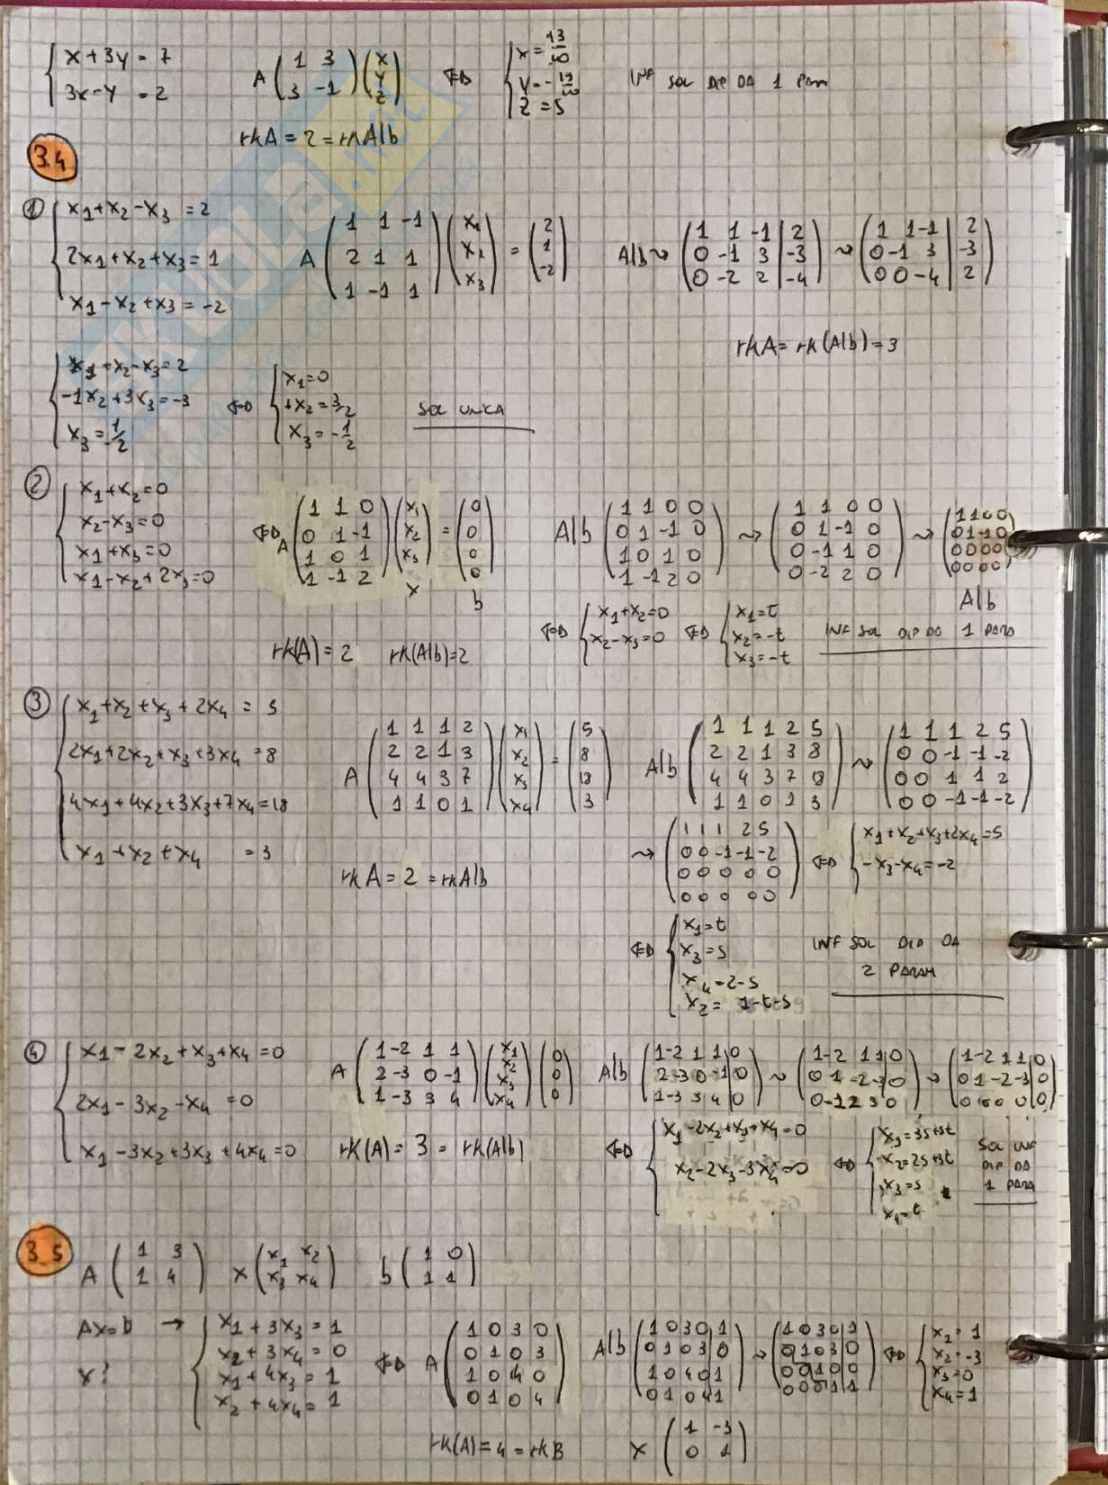 { x+3y = 7
3x-y = 2
A ( 1 3 / 3 -1 ) ( x / y / z ) ⇔ { x = 13/10 / y = -19/10 / z = 5
INF SOL DIP DA 1 PAM
rkA = 2 = rkA|b
3.4
① { x₁+x₂-x₃ = 2
2x₁+x₂+x₃ = 1
x₁-x₂+x₃ = -2
A ( 1 1 -1 / 2 1 1 / 1 -1 1 ) ( x₁ / x₂ / x₃ ) = ( 2 / 1 / -2 )
A|b ⇝ ( 1 1 -1 | 2 / 0 -1 3 | -3 / 0 -2 2 | -4 ) ⇝ ( 1 1 -1 | 2 / 0 -1 3 | -3 / 0 0 -4 | 2 )
rkA = rk(A|b) = 3
{ x₁+x₂-x₃ = 2
-1x₂+3x₃ = -3
x₃ = -1/2
⇔ { x₁=0 / +x₂ = 3/2 / x₃ = -1/2
SOL UNICA
② { x₁+x₂=0
x₂-x₃=0
x₁+x₃=0
x₁-x₂+2x₃=0
⇔ A ( 1 1 0 / 0 1 -1 / 1 0 1 / 1 -1 2 ) ( x₁ / x₂ / x₃ ) = ( 0 / 0 / 0 / 0 )
x b
A|b ( 1 1 0 0 / 0 1 -1 0 / 1 0 1 0 / 1 -1 2 0 ) ⇝ ( 1 1 0 0 / 0 1 -1 0 / 0 -1 1 0 / 0 -2 2 0 ) ⇝ ( 1 1 0 0 / 0 1 -1 0 / 0 0 0 0 / 0 0 0 0 )
A|b
rk(A) = 2 rk(A|b)=2
⇔ { x₁+x₂=0 / x₂-x₃=0 ⇔ { x₁=t / x₂=-t / x₃=-t
INF SOL DIP DA 1 PARAM
③ { x₁+x₂+x₃+2x₄ = 5
2x₁+2x₂+x₃+3x₄ = 8
4x₁+4x₂+3x₃+7x₄=18
x₁+x₂+x₄ = 3
A ( 1 1 1 2 / 2 2 1 3 / 4 4 3 7 / 1 1 0 1 ) ( x₁ / x₂ / x₃ / x₄ ) = ( 5 / 8 / 18 / 3 )
A|b ( 1 1 1 2 5 / 2 2 1 3 8 / 4 4 3 7 18 / 1 1 0 1 3 ) ⇝ ( 1 1 1 2 5 / 0 0 -1 -1 -2 / 0 0 1 1 2 / 0 0 -1 -1 -2 )
rkA = 2 = rkA|b
⇝ ( 1 1 1 2 5 / 0 0 -1 -1 -2 / 0 0 0 0 0 / 0 0 0 0 0 ) ⇔ { x₁+x₂+x₃+2x₄=5 / -x₃-x₄=-2
⇔ { x₁=t / x₃=s / x₄=2-s / x₂= 1-t-s
INF SOL DIP DA
2 PARAM
④ { x₁-2x₂+x₃+x₄=0
2x₁-3x₂-x₄ = 0
x₁-3x₂+3x₃+4x₄=0
A ( 1 -2 1 1 / 2 -3 0 -1 / 1 -3 3 4 ) ( x₁ / x₂ / x₃ / x₄ ) ( 0 / 0 / 0 )
A|b ( 1 -2 1 1 | 0 / 2 -3 0 -1 | 0 / 1 -3 3 4 | 0 ) ⇝ ( 1 -2 1 1 | 0 / 0 1 -2 -3 | 0 / 0 -1 2 3 0 ) ⇝ ( 1 -2 1 1 | 0 / 0 1 -2 -3 | 0 / 0 0 0 0 | 0 )
rk(A) = 3 = rk(A|b)
⇔ { x₁-2x₂+x₃+x₄=0 / x₂-2x₃-3x₄=0 ⇔ { x₁=3s+5t / x₂=2s+3t / x₃=s / x₄=t
SOL INF
DIP DA
1 PARA
3.5
A ( 1 3 / 1 4 ) x ( x₁ x₂ / x₃ x₄ ) b ( 1 0 / 1 1 )
Ax=b → { x₁+3x₃ = 1
x₂+3x₄ = 0
x₁+4x₃ = 1
x₂+4x₄ = 1
x?
⇔ A ( 1 0 3 0 / 0 1 0 3 / 1 0 4 0 / 0 1 0 4 )
A|b ( 1 0 3 0 | 1 / 0 1 0 3 | 0 / 1 0 4 0 1 / 0 1 0 4 1 ) ⇝ ( 1 0 3 0 | 1 / 0 1 0 3 0 / 0 0 1 0 0 / 0 0 0 1 1 ) ⇔ { x₁=1 / x₂=-3 / x₃=0 / x₄=1
rk(A) = 4 = rkB
x ( 1 -3 / 0 1 )